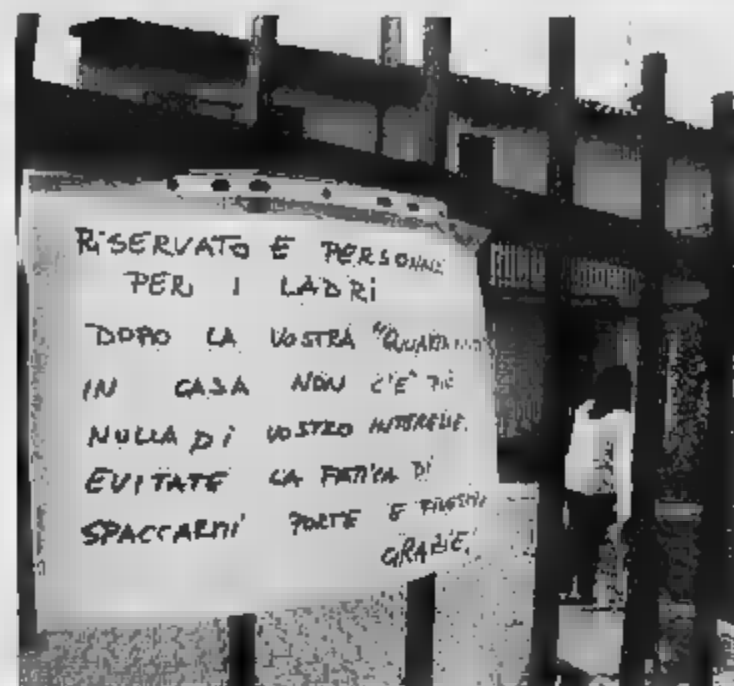 RiSERVATO E PERSONALE
PER I LADRi
DOPO LA VOSTRA
IN CASA NON C'E' PIÙ
NULLA Di VOSTRO INTERESSE.
EVITATE LA FATICA DI
SPACCARMI PORTE E FINESTRE
GRAZIE.